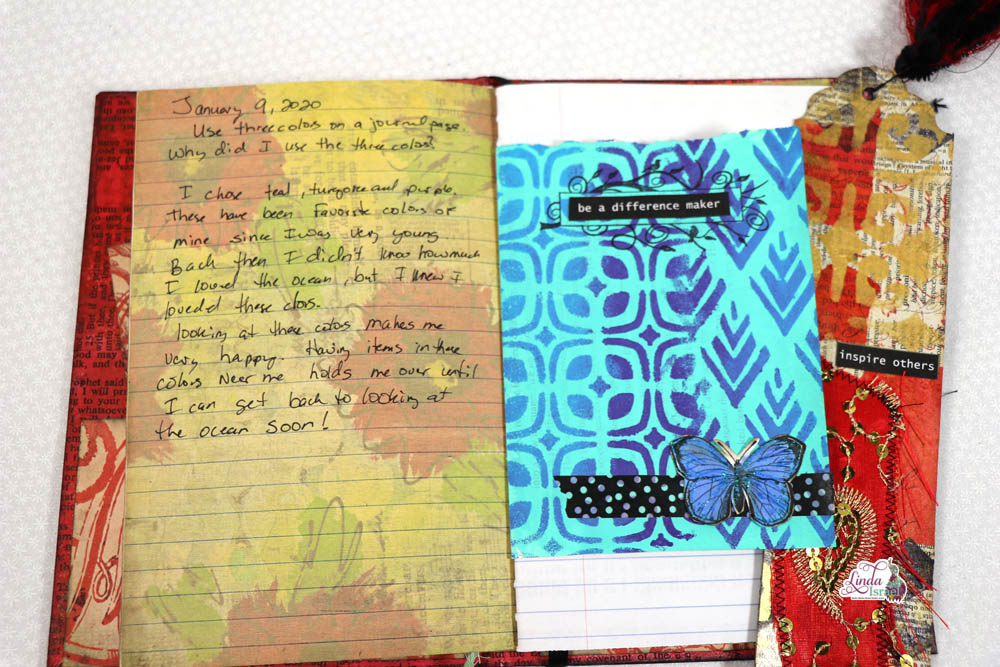 January 9, 2020
Use three colors on a journal page.
Why did I use the three colors
I chose teal, turqoise and purple.
these have been favorite colors of
mine since I was very young
Back then I didn't know how much
I loved the ocean, but I knew I
loveded these clors.
looking at these colors makes me
very happy. Having items in these
colors Near me holds me over until
I can get back to looking at
the ocean soon!
be a difference maker
inspire others
Linda
Israel